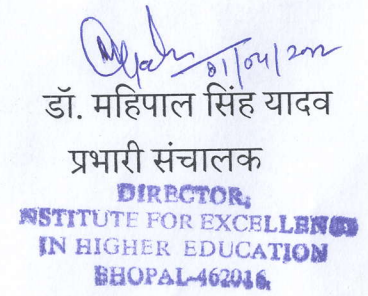 01/04/2022
डॉ. महिपाल सिंह यादव
प्रभारी संचालक
DIRECTOR,
INSTITUTE FOR EXCELLENCE
IN HIGHER EDUCATION
BHOPAL-462016.